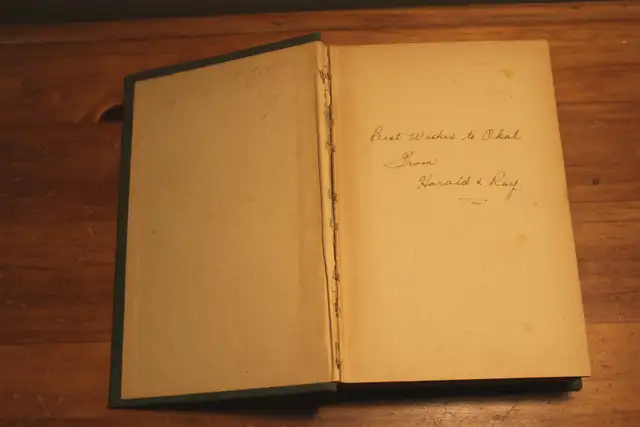 Best Wishes to Okal
From
Harold & Ray